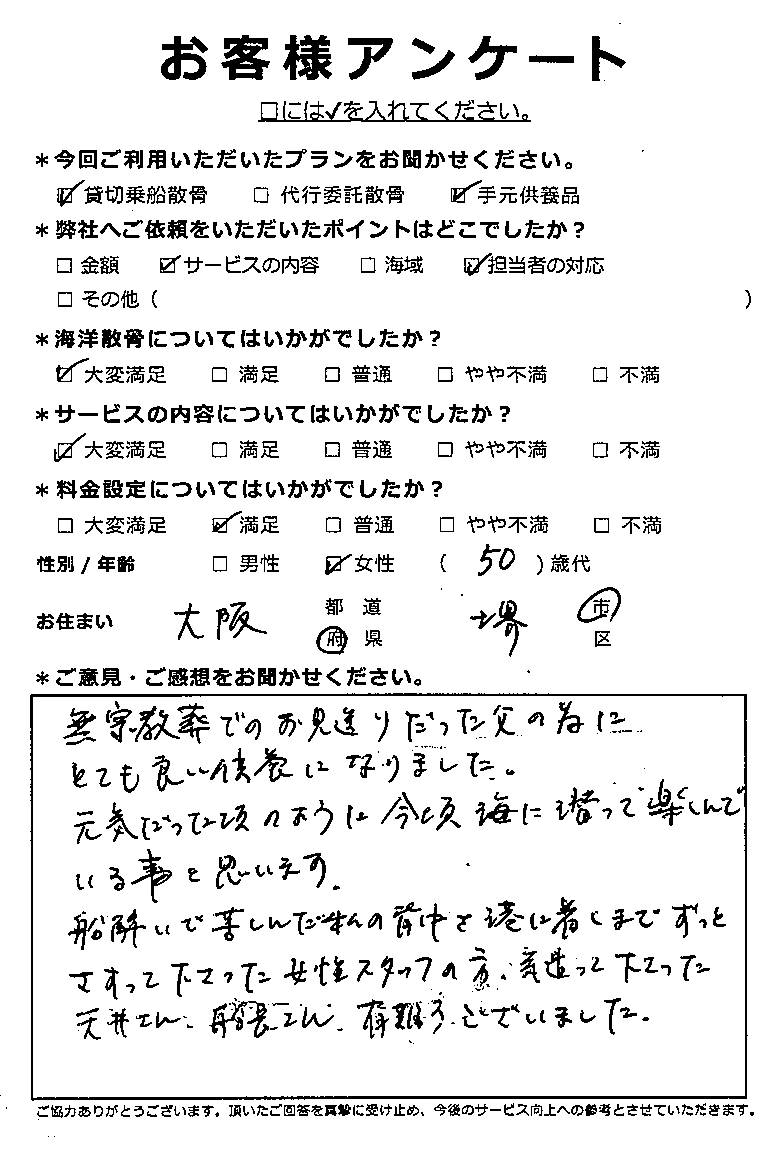 お客様アンケート
□には✓を入れてください。
＊今回ご利用いただいたプランをお聞かせください。
☑貸切乗船散骨 □代行委託散骨 ☑手元供養品
＊弊社へご依頼をいただいたポイントはどこでしたか？
□金額 ☑サービスの内容 □海域 ☑担当者の対応
□その他（ ）
＊海洋散骨についてはいかがでしたか？
☑大変満足 □満足 □普通 □やや不満 □不満
＊サービスの内容についてはいかがでしたか？
☑大変満足 □満足 □普通 □やや不満 □不満
＊料金設定についてはいかがでしたか？
□大変満足 ☑満足 □普通 □やや不満 □不満
性別/年齢 □男性 ☑女性 （ 50 ）歳代
お住まい 大阪 都 道 府 県 堺 市 区
＊ご意見・ご感想をお聞かせください。
無宗教葬でのお見送りだった父の為に
とても良い供養になりました。
元気だった頃のように今頃海に潜って楽しんで
いる事と思います。
船酔いで苦しんだ私の背中を港に着くまでずっと
さすって下さった女性スタッフの方、気遣って下さった
天井さん、船長さん、有難うございました。
ご協力ありがとうございます。頂いたご回答を真摯に受け止め、今後のサービス向上への参考とさせていただきます。